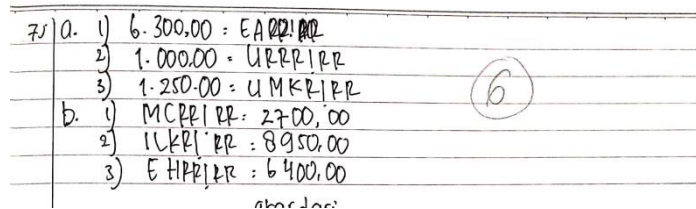 75 a. 1) 6.300,00 = EARRIRR
2) 1.000.00 = URRRIRR
3) 1.250.00 = UMKRIRR
6
b. 1) MCRRIRR : 2700,00
2) ILKRIRR : 8950,00
3) EHRRIRR : 6400,00